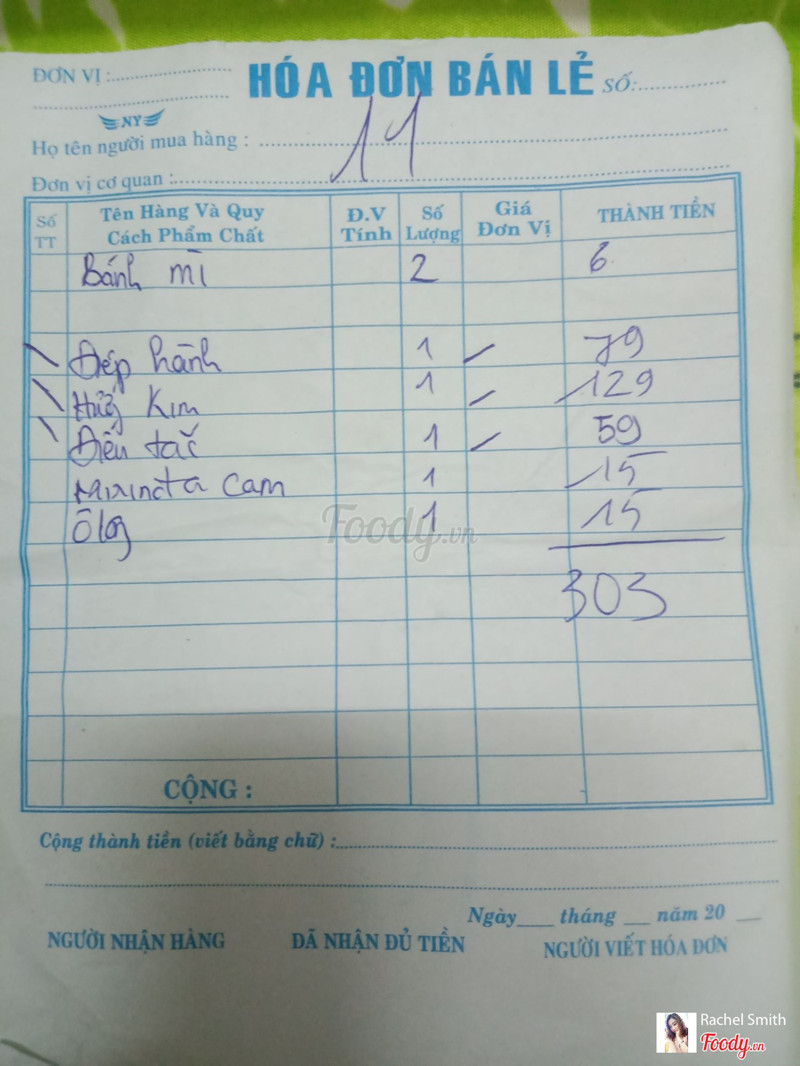 ĐƠN VỊ :
HÓA ĐƠN BÁN LẺ SỐ:
NY
Họ tên người mua hàng : 11
Đơn vị cơ quan :
Số TT Tên Hàng Và Quy Cách Phẩm Chất Đ.V Tính Số Lượng Giá Đơn Vị THÀNH TIỀN
Bánh mì 2 6
Điệp hành 1 79
Kim 1 129
1 59
Mirinda cam 1 15
Ôlg 1 15
303
CỘNG :
Cộng thành tiền (viết bằng chữ) :
Ngày tháng năm 20
NGƯỜI NHẬN HÀNG ĐÃ NHẬN ĐỦ TIỀN NGƯỜI VIẾT HÓA ĐƠN
Foody.vn
Rachel Smith
Foody.vn